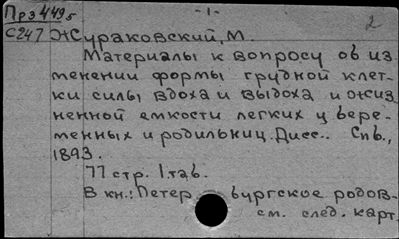 Прз 4495 -1- 2
С247 Жураковский, М.
Материалы к вопросу об из
менении формы грудной клет-
ки силы вдоха и выдоха и жиз
ненной емкости легких у бере-
менных и родильниц. Дисс.. Спб.,
1893.
77 стр. 1 таб.
В кн.: Петербургское родов-
см. след. карт.